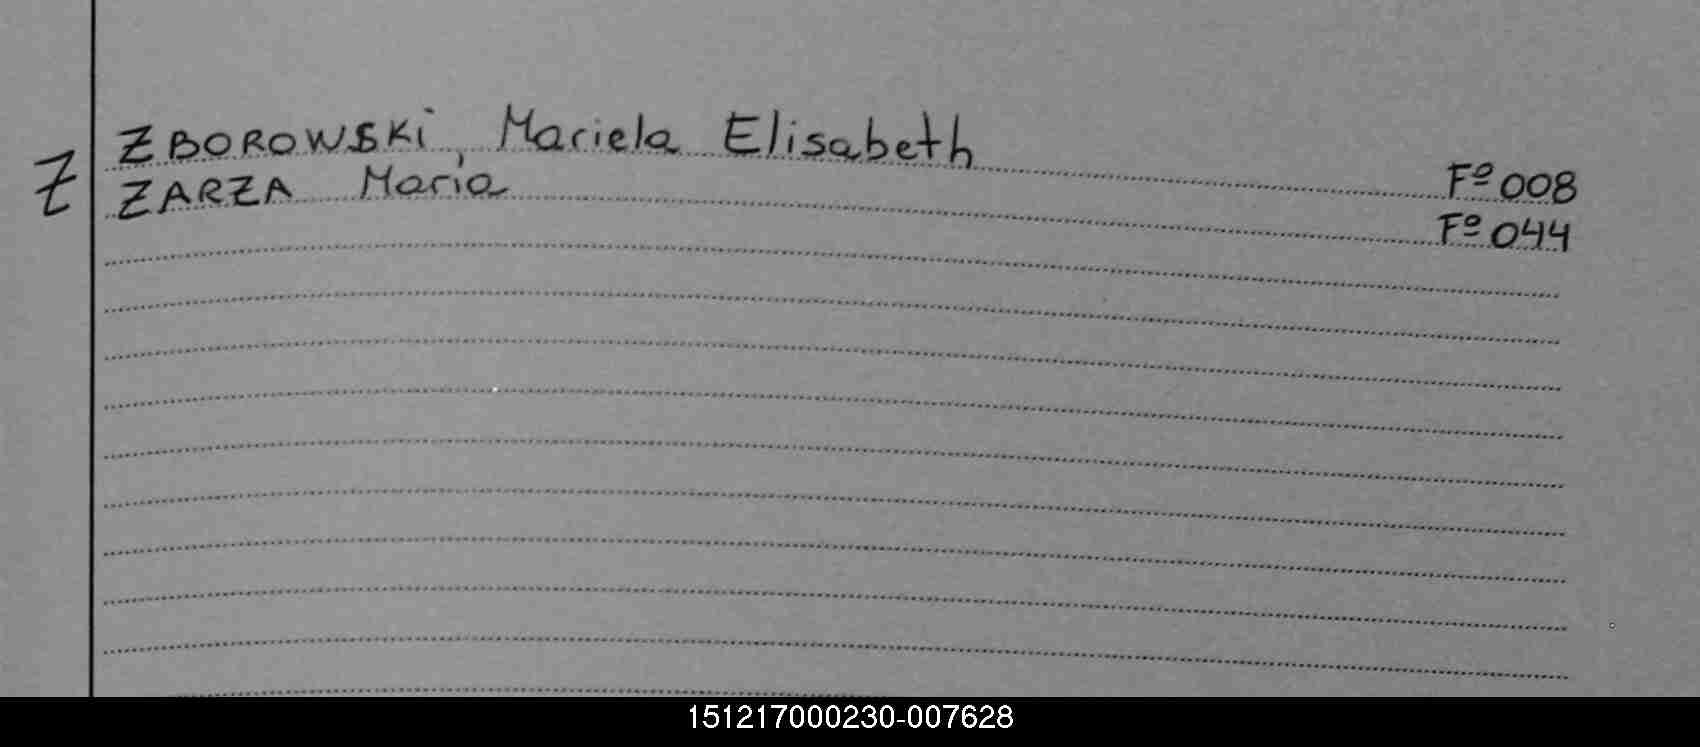 Z
ZBOROWSKi, Mariela Elisabeth Fº 008
ZARZA Maria Fº 044
151217000230-007628